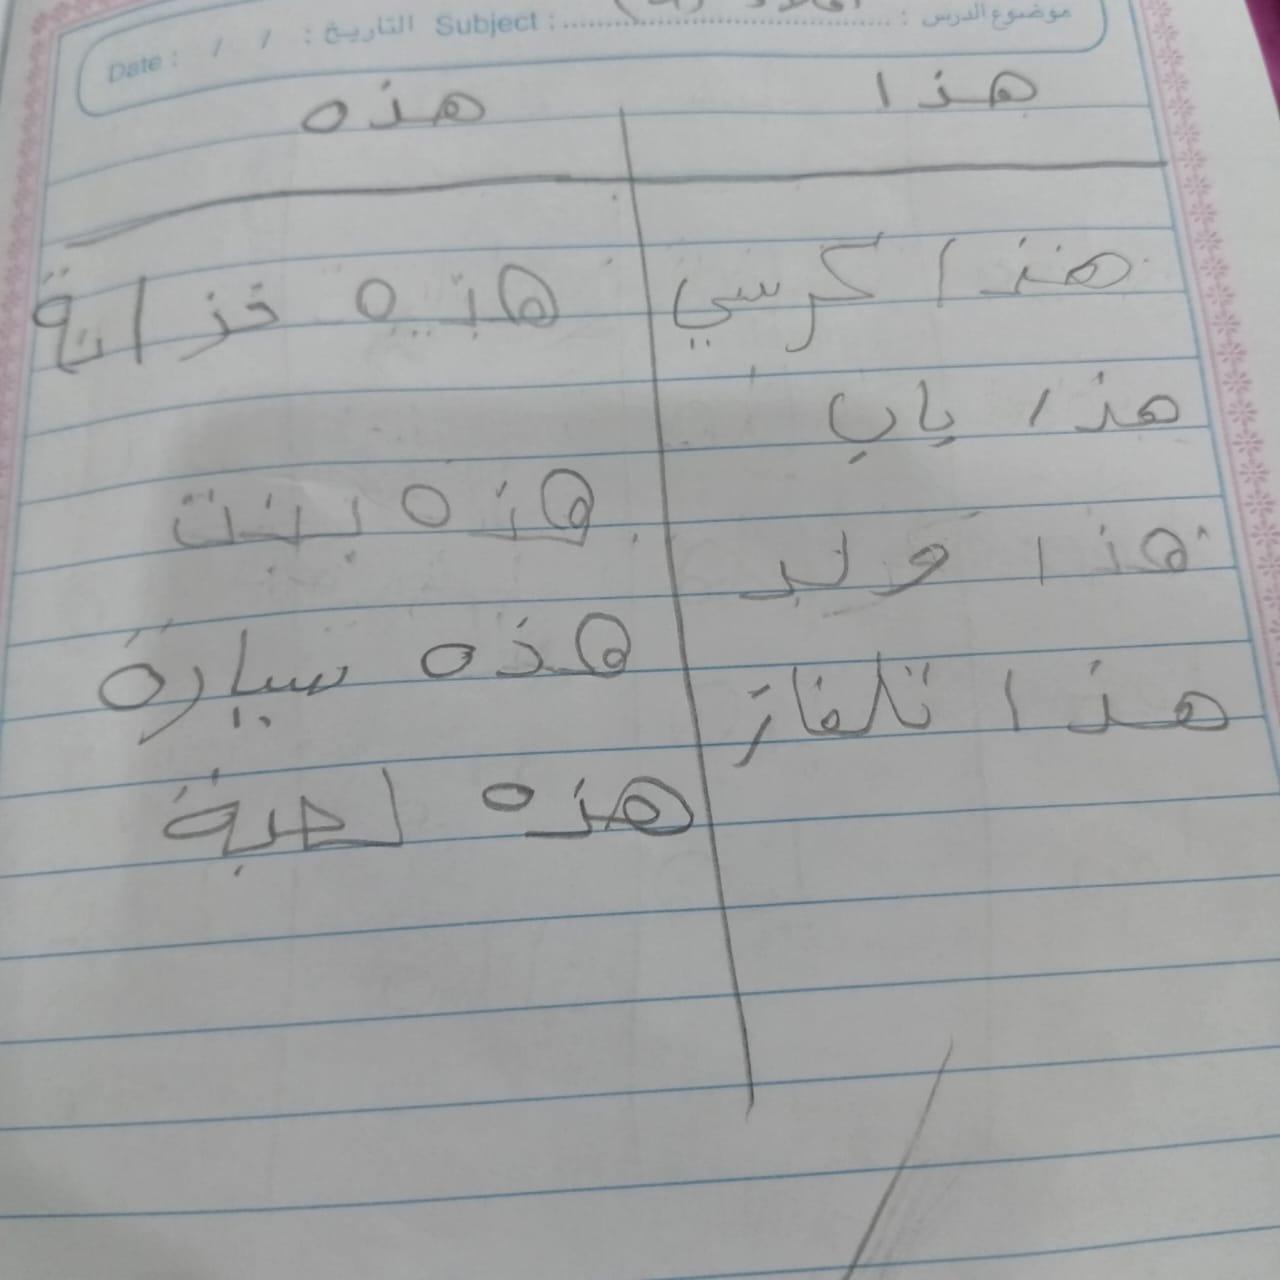 موضوع الدرس : Subject : التاريخ : / / Date :
هذا هذه
هذا كرسي هذه خزانة
هذا باب
هذا ولد هذه بنت
هذا تلفاز هذه سيارة
هذه لعبة